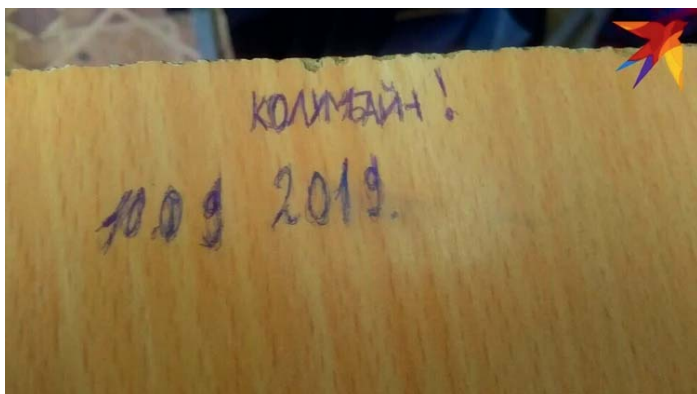 КОЛУМБАЙН!
10.09 2019.